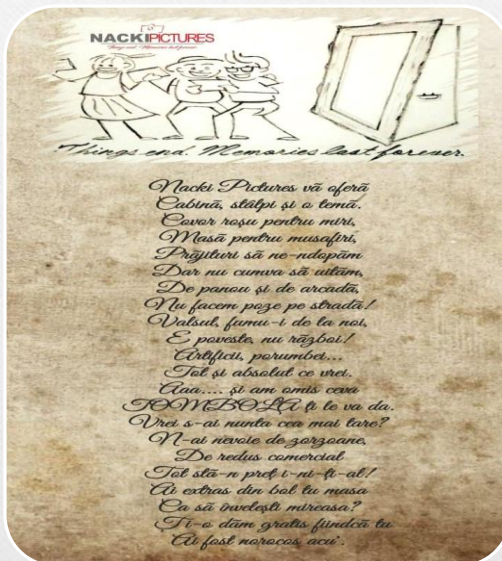 NACKIPICTURES
Things end. Memories last forever.
Things end. Memories last forever.
Nacki Pictures vă oferă
Cabină, stâlpi și o temă.
Covor roșu pentru miri,
Masă pentru musafiri,
Prăjituri să ne-ndopăm
Dar nu cumva să uităm,
De panou și de arcadă,
Nu facem poze pe stradă!
Valsul, fumu-i de la noi,
E poveste, nu război!
Artificii, porumbei...
Tot și absolut ce vrei.
Aaa.... și am omis ceva
TOMBOLA ți le va da.
Vrei s-ai nunta cea mai tare?
N-ai nevoie de zorzoane,
De redus comercial
Tot stă-n preț i-ni-ți-al!
Ai extras din bol tu masa
Ca să învelești mireasa?
Ți-o dăm gratis fiindcă tu
Ai fost norocos acu'.